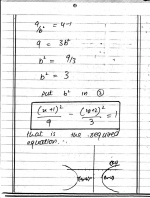 9/b² = 4-1
9 = 3b²
b² = 9/3
b² = 3
put b² in ③
(x+1)²/9 - (y+2)²/3 = 1
that is the required
equation.